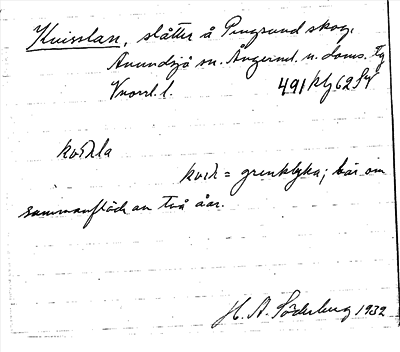 Kvisslan, slåtter å Pengsund skog,
Anundsjö sn. Ångerml. n. doms. tg
Vnorrl. l. 491 kg 62 SV
kvislla
kvisl = grenklyka; här om
sammanflöde av två åar.
H. A. Söderberg 1932